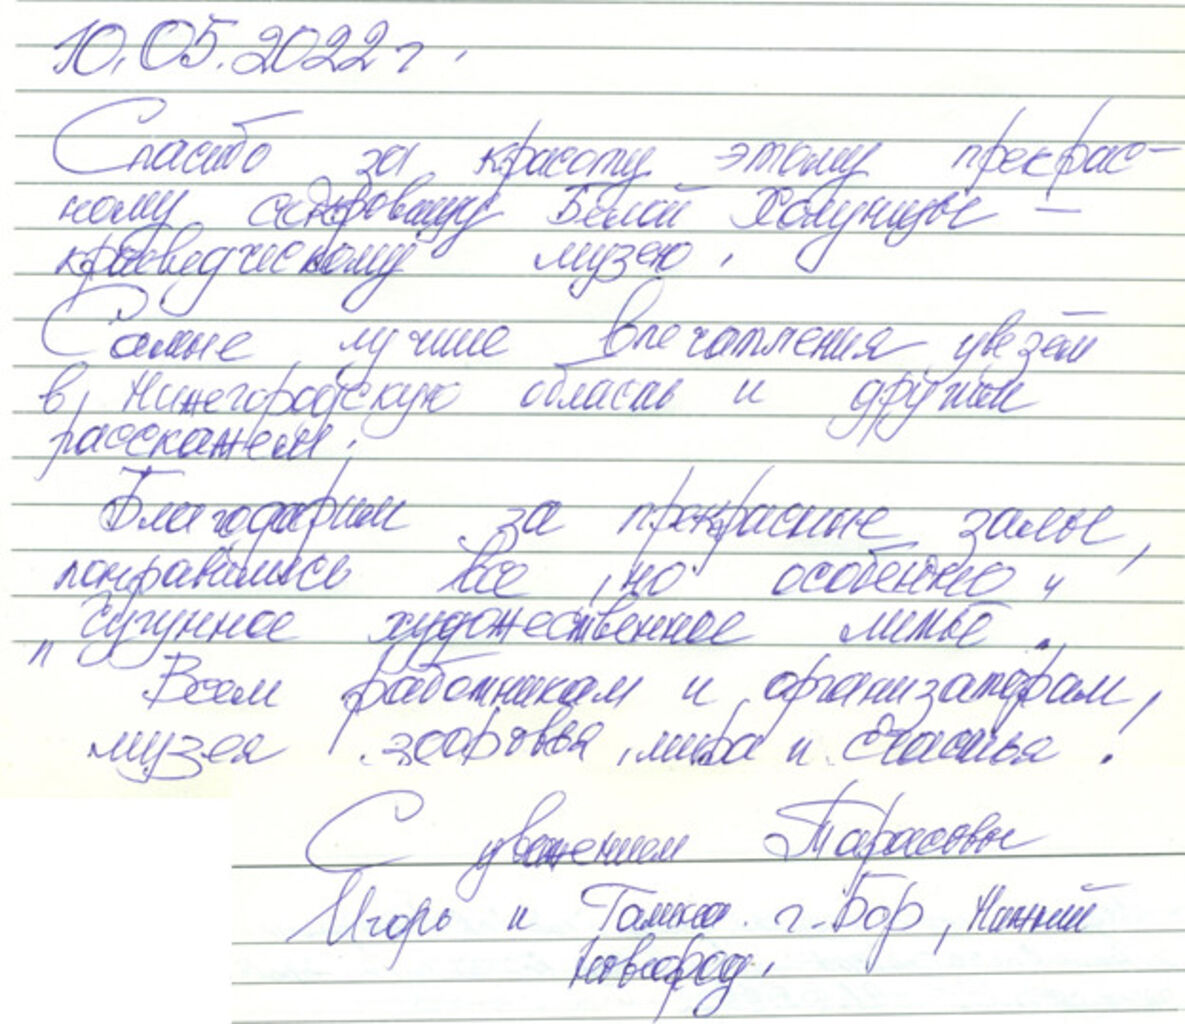 10.05.2022 г.
Спасибо за красоту этому прекрас-
ному сокровищу Белой Холуницы –
краеведческому музею.
Самые лучшие впечатления увезём
в Нижегородскую область и другим
расскажем.
Благодарим за прекрасные залы,
понравилось все, но особенно "
"Чугунное художественное литьё".
Всем работникам и организаторам,
музея здоровья, мира и счастья!
С уважением Тарасовы
Игорь и Галина. г. Бор, Нижний
Новгород.